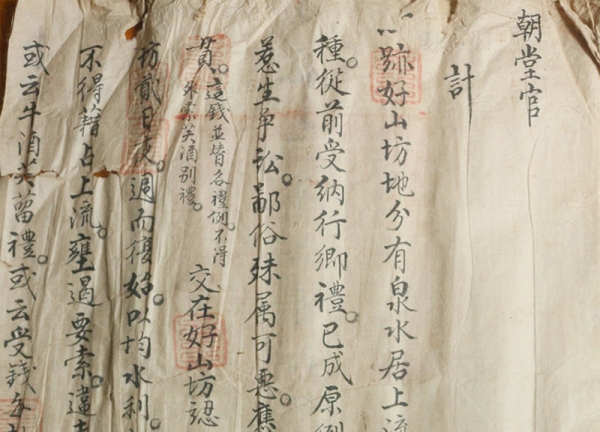 朝堂官
計
一跡好山坊地分有泉水居上流
種。從前受納行鄉禮。已成原例
惹生爭訟。鄙俗殊属可惡。應
貫。這錢並替各禮例。不得
来索芙酒別禮。
交在好山坊認
坊貳日夜。週而復始。以均水利。
不得藉占上流。壅遏要索。違者
或云牛酒芙蒥禮。或云受錢多